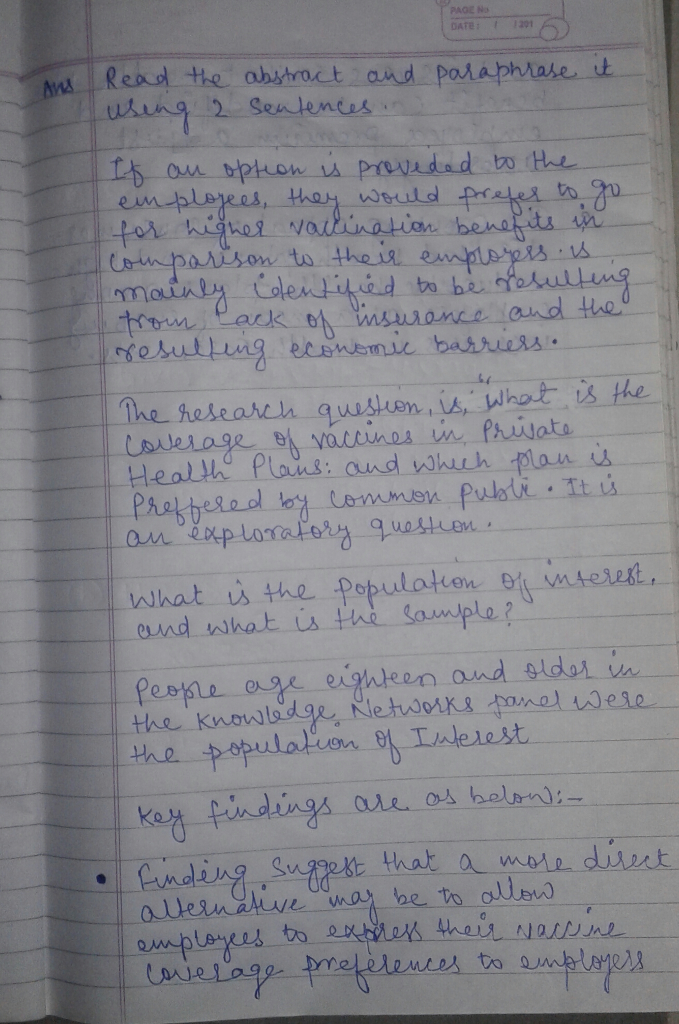 PAGE No
DATE: / / 201
Ans Read the abstract and paraphrase it
using 2 sentences.
If an option is provided to the
employees, they would prefer to go
for higher vaccination benefits in
comparison to their employers. is
mainly identified to be resulting
from Lack of insurance and the
resulting economic barriers.
The research question, is, "What is the
coverage of vaccines in Private
Health Plans: and which plan is
Preffered by common publi. It is
an exploratory question.
What is the Population of interest,
and what is the Sample?
People age eighteen and older in
the Knowledge Networks panel were
the population of Interest
Key findings are as below:-
• Finding Suggest that a more direct
alternative may be to allow
employees to express their vaccine
coverage preferences to employers